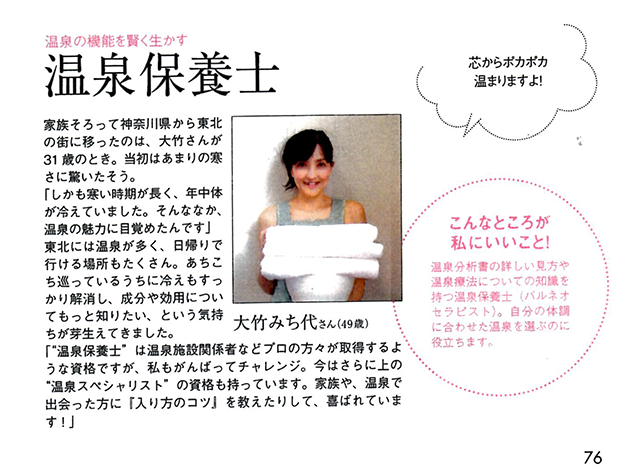 温泉の機能を賢く生かす
温泉保養士
家族そろって神奈川県から東北
の街に移ったのは、大竹さんが
31歳のとき。当初はあまりの寒
さに驚いたそう。
「しかも寒い時期が長く、年中体
が冷えていました。そんななか、
温泉の魅力に目覚めたんです」
東北には温泉が多く、日帰りで
行ける場所もたくさん。あちこ
ち巡っているうちに冷えもすっ
かり解消し、成分や効用につい
てもっと知りたい、という気持
ちが芽生えてきました。
「“温泉保養士”は温泉施設関係者などプロの方々が取得するよ
うな資格ですが、私もがんばってチャレンジ。今はさらに上の
“温泉スペシャリスト”の資格も持っています。家族や、温泉で
出会った方に『入り方のコツ』を教えたりして、喜ばれていま
す！」
大竹みち代さん(49歳)
芯からポカポカ
温まりますよ!
こんなところが
私にいいこと!
温泉分析書の詳しい見方や
温泉療法についての知識を
持つ温泉保養士（バルネオ
セラピスト）。自分の体調
に合わせた温泉を選ぶのに
役立ちます。
76